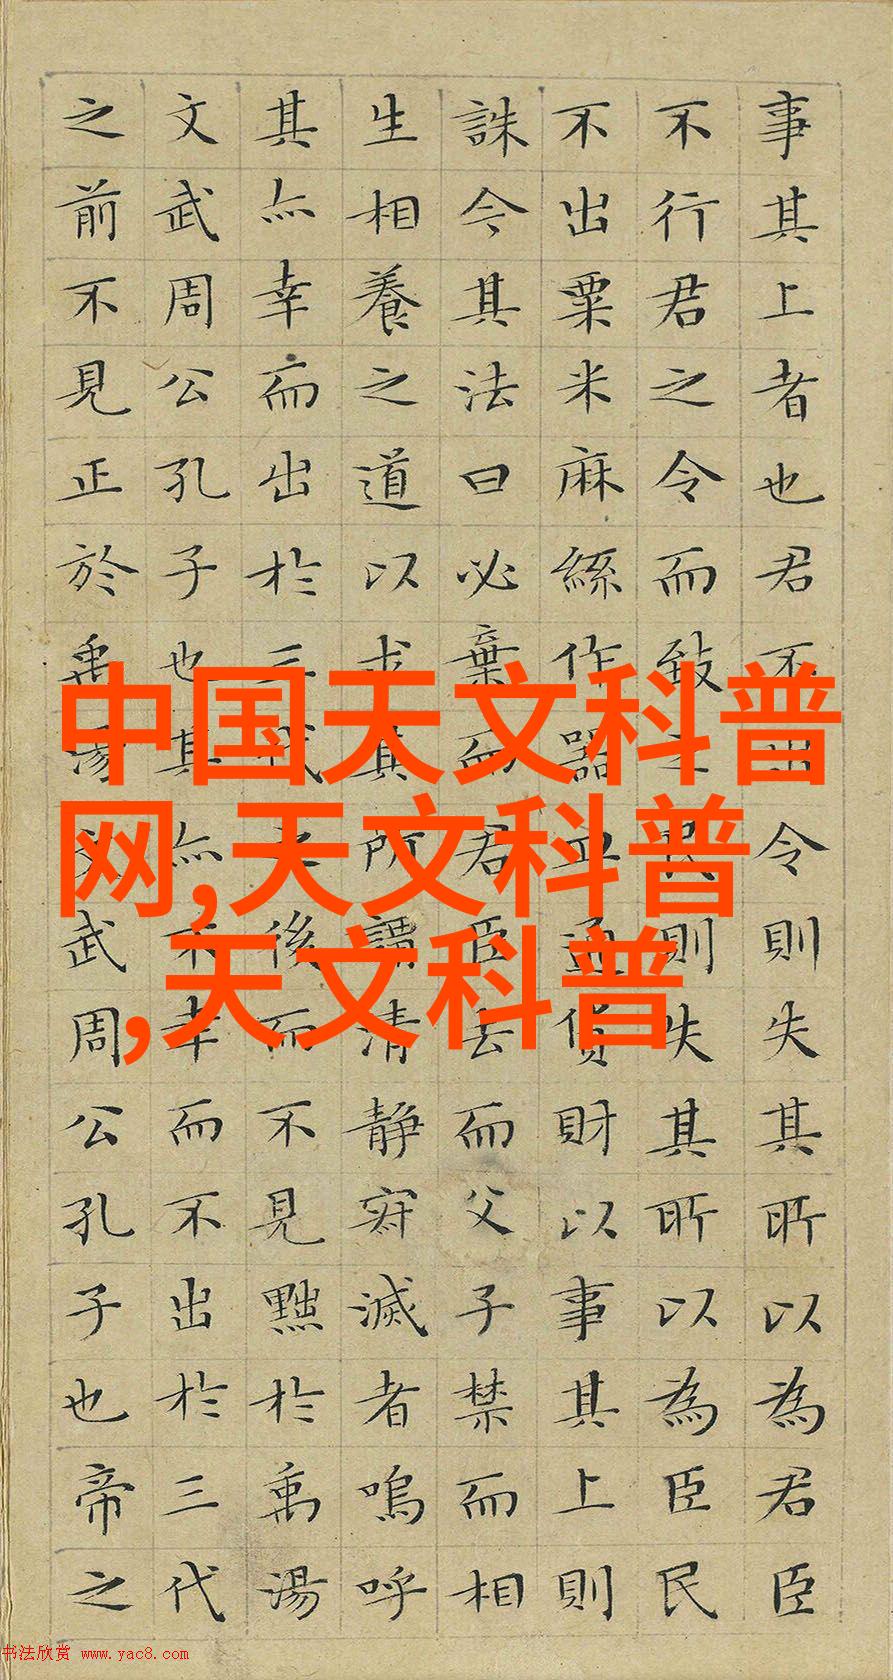 事其上者也君不出令則失其所以為君臣
不行君之令而致之民則失其所以為臣民
不出粟米麻絲作器皿通貨財以事其上則
誅今其法曰必棄而君臣去而父子禁而相
生相養之道以求其所謂清静寂滅者嗚呼
其亦幸而出於三代之後而不見黜於禹湯
文武周公孔子也其亦不幸而不出於三代
之前不見正於禹湯文武周公孔子也帝之
中国天文科普
网,天文科普
,天文科普
书法欣赏 www.yac8.com